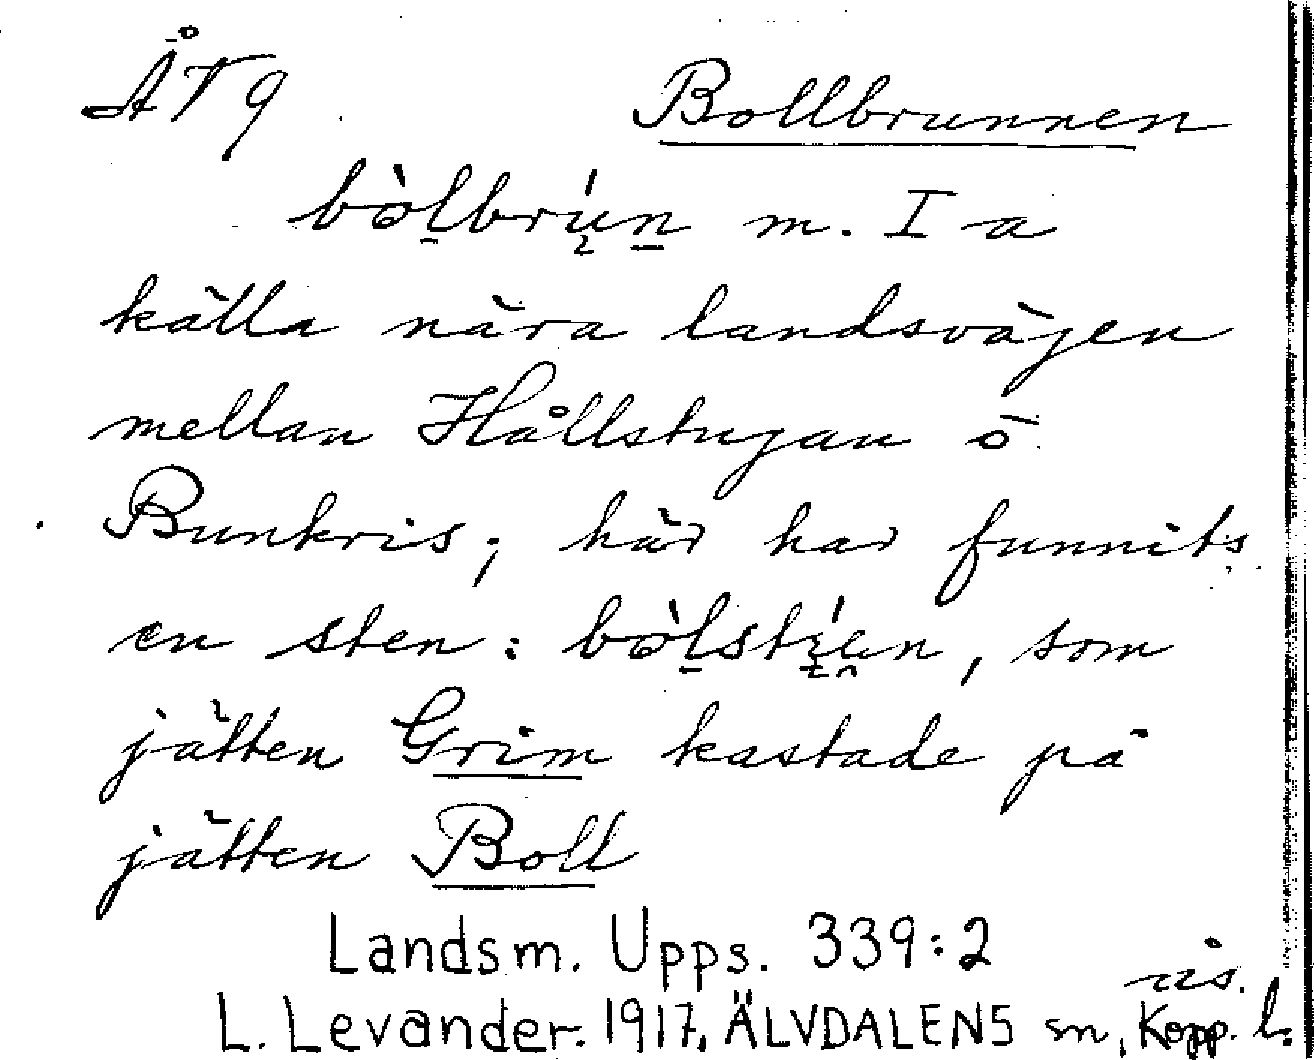 ÅT9 Bollbrunnen
bòlbrún m. I a
källa nära landsvägen
mellan Hållstugan o
Bunkris; här har funnits
en sten: , som
jätten Grim kastade på
jätten Boll
Landsm. Upps. 339:2
L. Levander. 1917. ÄLVDALENS sn, Kopp. l.